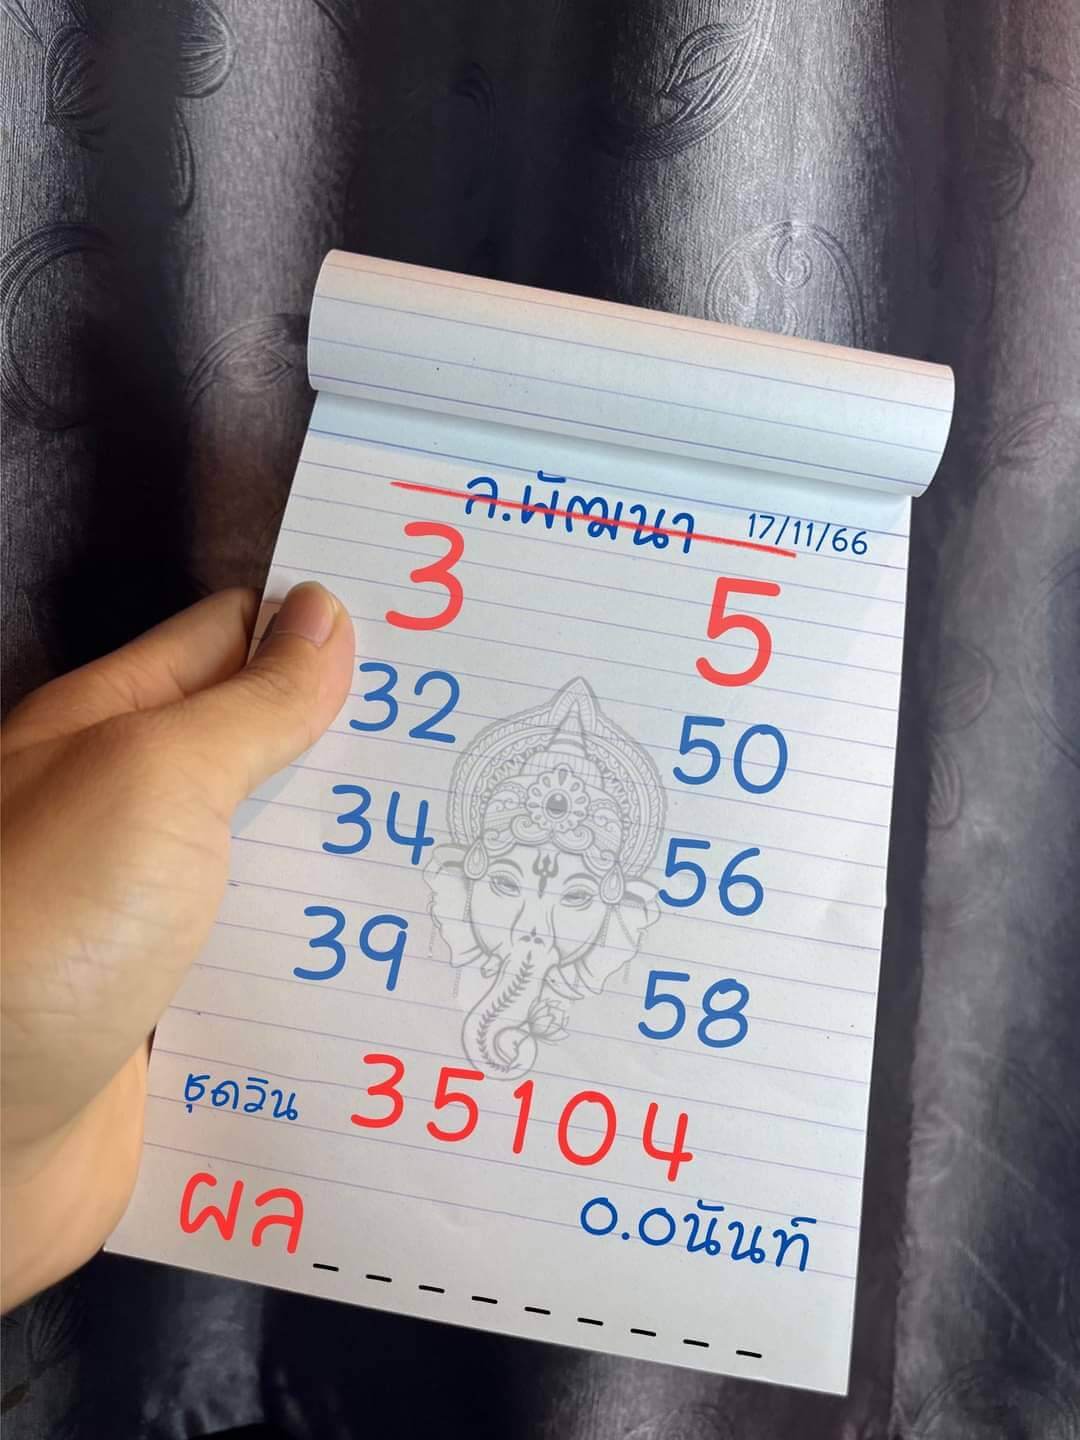 ล.พัฒนา 17/11/66
3 5
32 50
34 56
39 58
ชุดวิน 35104
ผล
อ.อนันท์